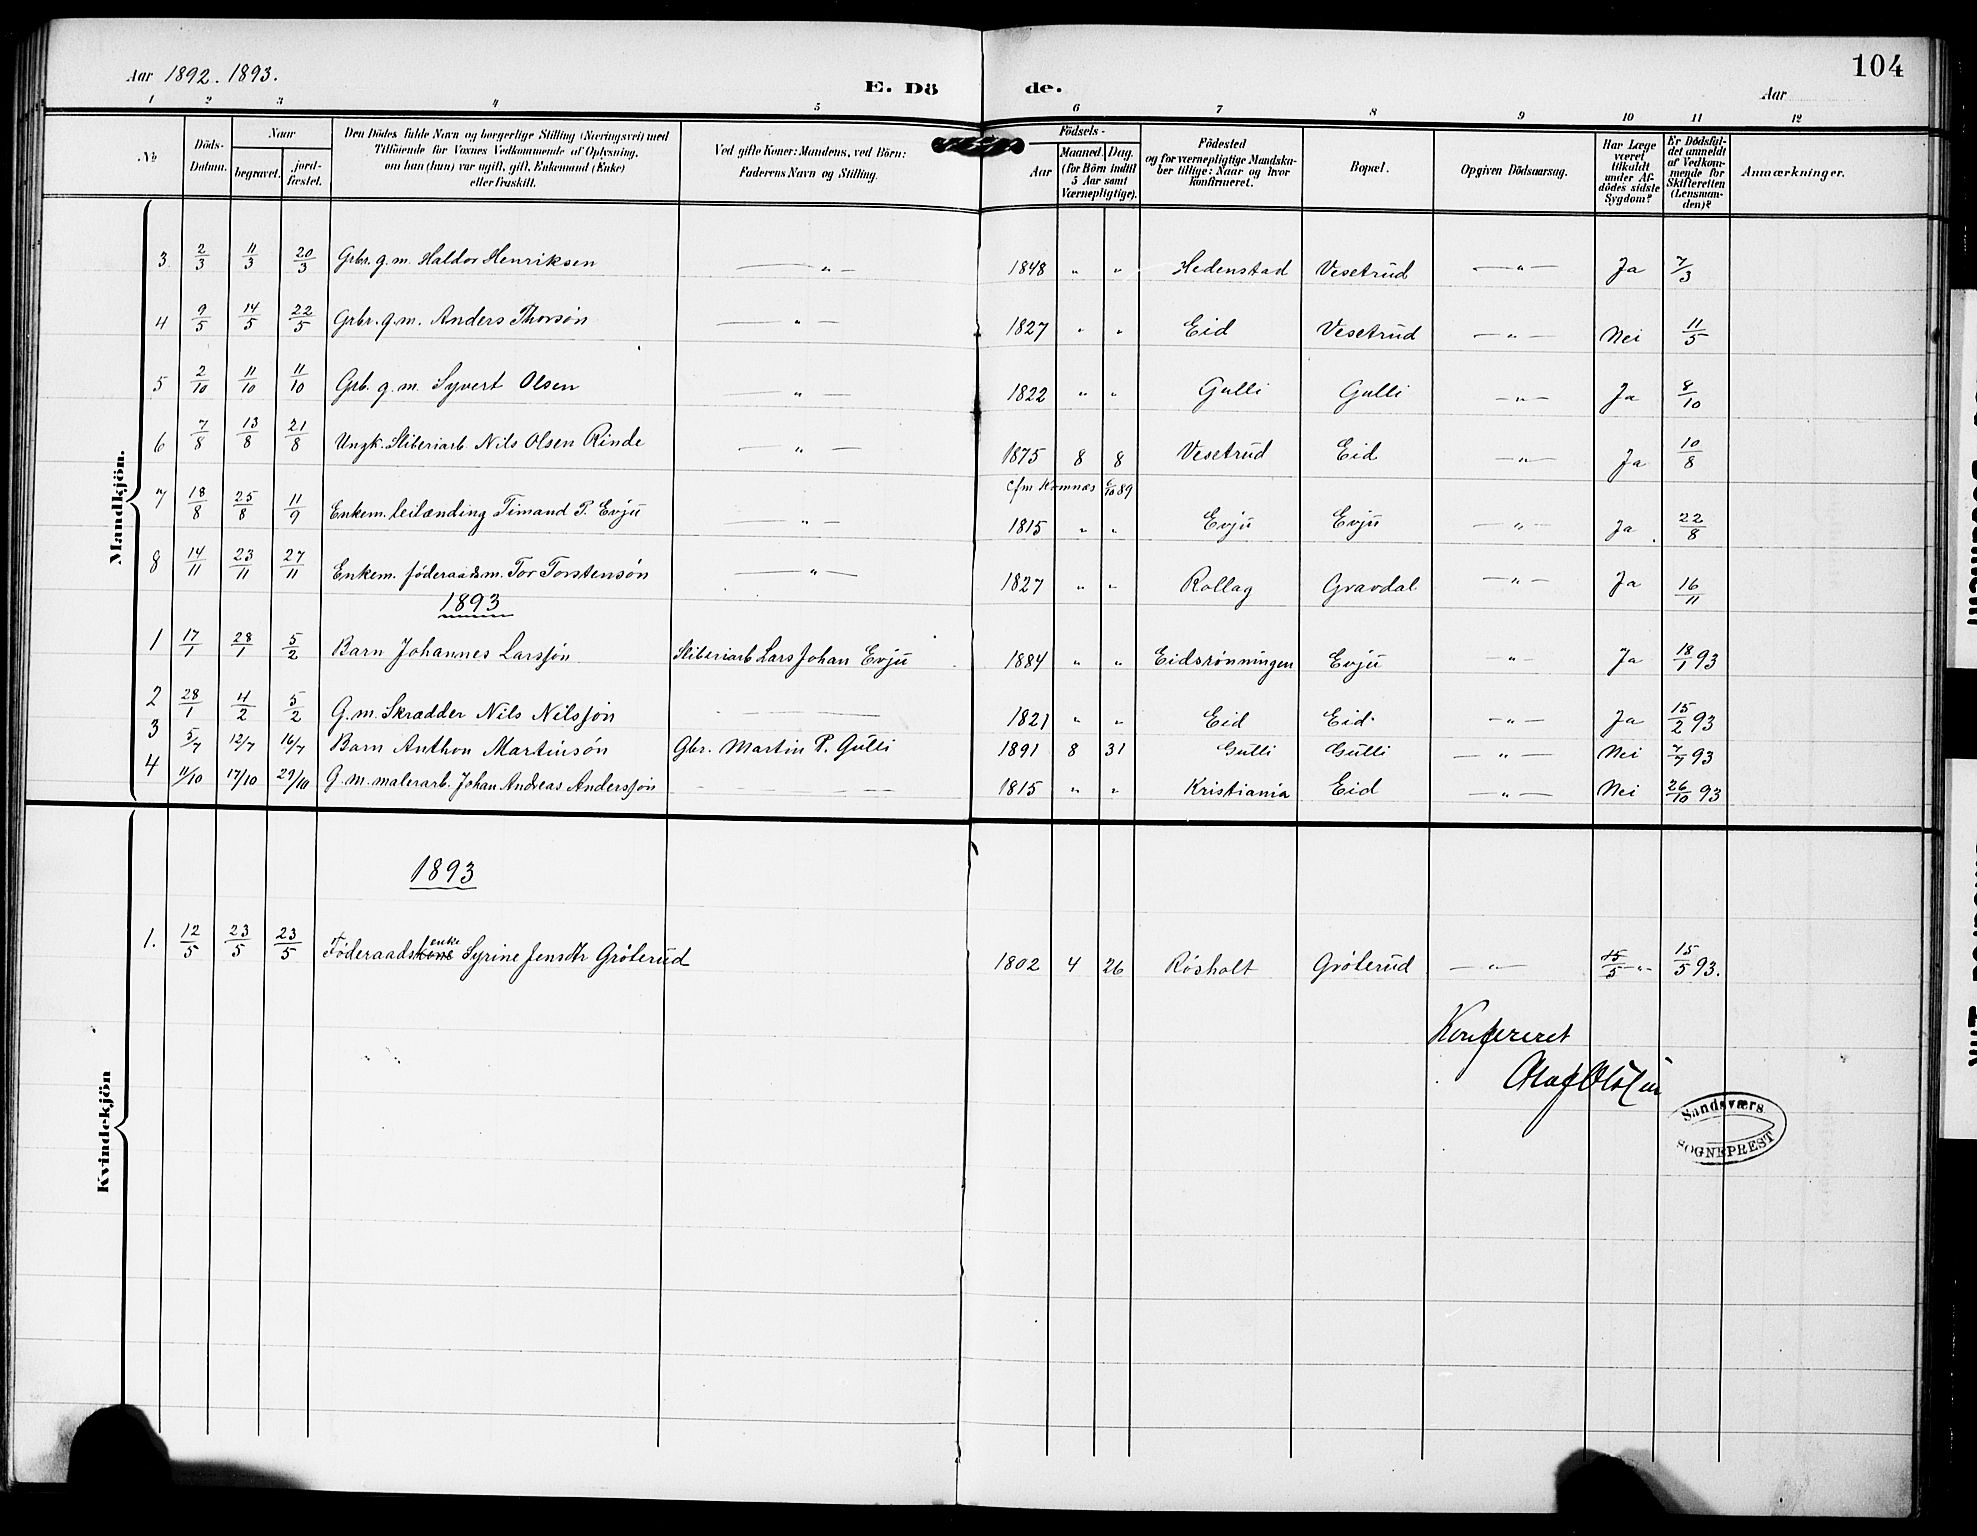 Aar 1892. 1893.
E. Dö de.
Aar
104
1 2 3 4 5 6 7 8 9 10 11 12
No
Döds-Datum.
Naar
begravet.
jord-fæstet.
Den Dödes fulde Navn og borgerlige Stilling (Næringsvei) med
Tilföiende for Voxnes Vedkommende af Oplysning,
om han (hun) var ugift, gift, Enkemand (Enke)
eller fraskilt.
Ved gifte Koner: Mandens, ved Börn:
Faderens Navn og Stilling.
Födsels-
Aar
Maaned. Dag.
(for Börn indtil
5 Aar samt
Værnepligtige).
Födested
og for værnepligtige Mandska-
ber tillige: Naar og hvor
konfirmeret.
Bopæl.
Opgiven Dödsaarsag.
Har Læge
været
tilkaldt
under Af-
dödes sidste
Sygdom?
Er Dödsfal-
det anmeldt
af Vedkom-
mende for
Skifteretten
(Lensman-
den)?
Anmærkninger.
Mandkjön.
3 2/3 11/3 20/3 Grbr. g. m. Haldor Henriksen — " — 1848 " " Hedenstad Vesetrud — " — Ja 7/3
4 9/5 14/5 22/5 Grbr. g. m. Anders Thorsøn — " — 1827 " " Eid Vesetrud — " — Nei 11/5
5 2/10 11/10 11/10 Grb. g. m. Syvert Olsen — " — 1822 " " Gulli Gulli — " — Ja 8/10
6 7/8 13/8 21/8 Ungk. Sliberiarb Nils Olsen Rinde — " — 1875 8 8 Vesetrud Eid — " — Ja 10/8
Cfm Komnæs 6/10 89
7 18/8 25/8 11/9 Enkem. leilænding Timand P. Evju — " — 1815 " " Evju Evju — " — Ja 22/8
8 14/11 23/11 27/11 Enkem. föderaadsm. Tor Torstensøn — " — 1827 " " Rollag Gravdal — " — Ja 16/11
1893
1 17/1 28/1 5/2 Barn Johannes Larssøn Sliberiarb Lars Johan Evju 1884 " " Eidsrønningen Evju — " — Ja 18/1 93
2 28/1 4/2 5/2 G. m. Skrædder Nils Nilssøn — 1821 " " Eid Eid — " — Ja 15/2 93
3 5/7 12/7 16/7 Barn Anthon Martinsøn Gbr. Martin P. Gulli 1891 8 31 Gulli Gulli — " — Nei 7/7 93
4 11/10 17/10 29/10 G. m. malerarb. Johan Andreas Anderssøn — 1815 " " Kristiania Eid — " — Nei 26/10 93
Kvindekjön
1893
1. 12/5 23/5 23/5 Føderaadskone enke Syrine Jensdtr Grøterud 1802 4 26 Røsholt Grøterud — " — 15/5 - " - 15/5 93.
Konfereret
Sandsværs
SOGNEPREST